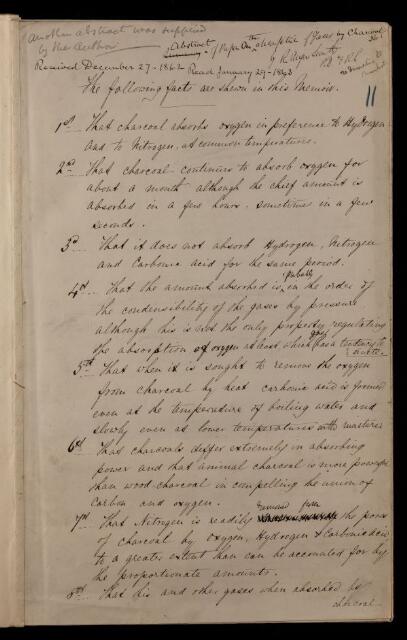 Another abstract was supplied
by the Author
Abstract
of Paper On the absorption of Gases by Charcoal No 1
by R. Angus Smith
Received December 27 - 1862 Read January 29 - 1863
11
The following facts are shewn in this Memoir.
1st That charcoal absorbs oxygen in preference to Hydrogen
and to Nitrogen, at common temperatures.
2nd That charcoal continues to absorb oxygen for
about a month although the chief amount is
absorbed in a few hours, sometimes in a few
seconds.
3d That it does not absorb Hydrogen, Nitrogen
and Carbonic acid for the same period.
4th That the amount absorbed is partially in the order of
the condensibility of the gases by pressure
although this is not the only property regulating
the absorption of oxygen gas at least which has a tendency to
unite.
5th That when it is sought to remove the oxygen
from charcoal by heat carbonic acid is formed
even at the temperature of boiling water and
slowly even at lower temperatures
6th That charcoals differ extremely in absorbing
power and that animal charcoal is more powerful
than wood charcoal in compelling the union of
Carbon and oxygen.
7th That Nitrogen is readily removed from the pores
of charcoal by oxygen, Hydrogen & Carbonic acid
to a greater extent than can be accounted for by
the proportionate amounts.
8th That this and other gases when absorbed by
charcoal